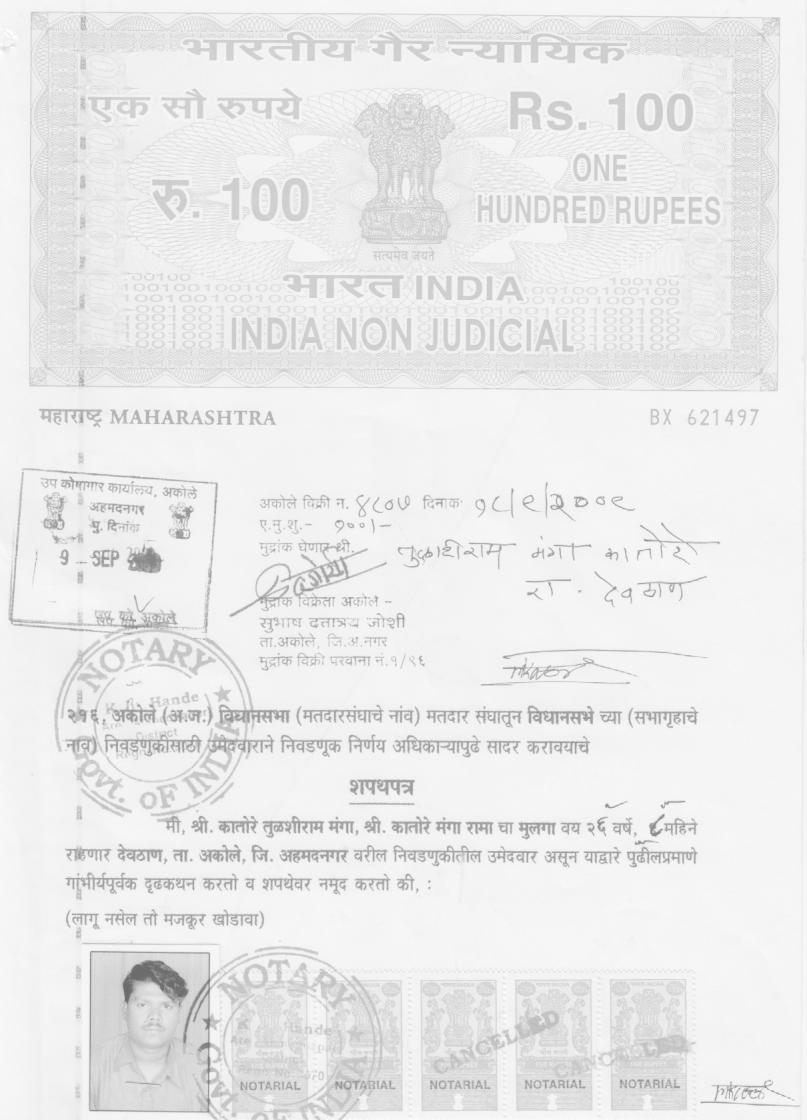 भारतीय गैर न्यायिक
एक सौ रुपये
Rs. 100
रु. 100
ONE
HUNDRED RUPEES
सत्यमेव जयते
भारत INDIA
INDIA NON JUDICIAL
महाराष्ट्र MAHARASHTRA
BX 621497
उप कोषागार कार्यालय, अकोले
अहमदनगर
मु. दिनांक
9 - SEP
अकोले
अकोले विक्री न. ४८०७ दिनांक १८/९/२००९
ए.मु.शु.- १००/-
मुद्रांक घेणार श्री. तुळशीराम मंगा कातोरे
रा. देवठाण
मुद्रांक विक्रेता अकोले –
सुभाष दत्तात्रय जोशी
ता.अकोले, जि.अ.नगर
मुद्रांक विक्री परवाना नं.१/९६
NOTARY
Hande
District
Govt. OF INDIA
२१६, अकोले (अ.ज.) विधानसभा (मतदारसंघाचे नांव) मतदार संघातून विधानसभे च्या (सभागृहाचे
नाव) निवडणुकीसाठी उमेदवाराने निवडणूक निर्णय अधिकाऱ्यापुढे सादर करावयाचे
शपथपत्र
मी, श्री. कातोरे तुळशीराम मंगा, श्री. कातोरे मंगा रामा चा मुलगा वय २६ वर्षे, ८ महिने
राहणार देवठाण, ता. अकोले, जि. अहमदनगर वरील निवडणुकीतील उमेदवार असून याद्वारे पुढीलप्रमाणे
गांभीर्यपूर्वक दृढकथन करतो व शपथेवर नमूद करतो की, :
(लागू नसेल तो मजकूर खोडावा)
NOTARY
Hande
Govt. OF INDIA
CANCELLED
CANCELLED
NOTARIAL NOTARIAL NOTARIAL NOTARIAL NOTARIAL